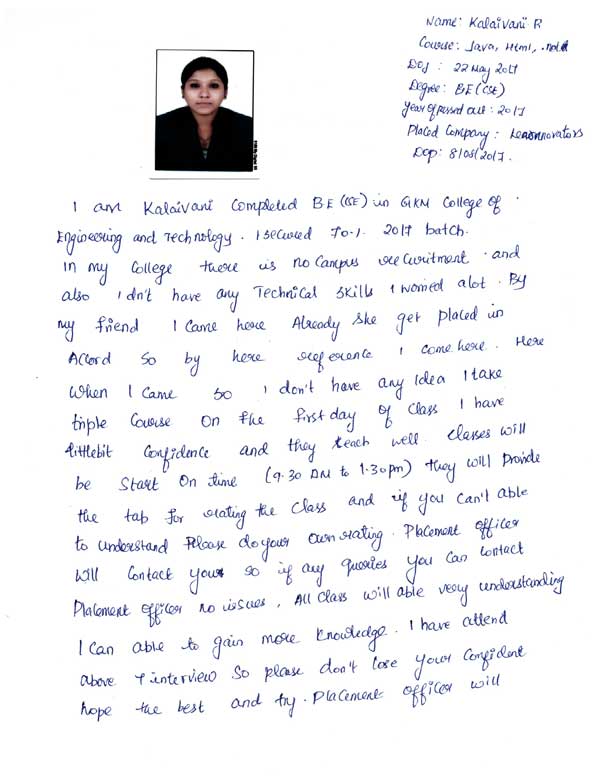 Name: Kalaivani R
Course: Java, Html, .net
DOJ : 22 May 2017
Degree: BE (CSE)
Year of passed out : 2017
Placed Company : Learnnovators
DOP: 8/08/2017.
I am Kalaivani Completed BE (CSE) in GKM College of
Engineering and Technology. I secured 70%. 2017 batch.
In my College there is no Campus recuritment. and
also I dn't have any Technical Skills I worried alot. By
my friend I Came here Already She get placed in
Accord So by here reference I come here. Here
When I Came so I don't have any Idea I take
triple Course On the first day of Class I have
littlebit Confidence and they teach well. Classes will
be Start On time (9.30 AM to 1.30pm) they will Provide
the tab for rating the Class and if you Can't able
to understand Please do your Own rating. Placement Officer
Will Contact your so if any queries you Can Contact
Placement Officer no issues. All Class will able very understanding
I Can able to gain more knowledge. I have attend
above 7 interview So please don't lose your Confident
hope the best and try. Placement Officer will